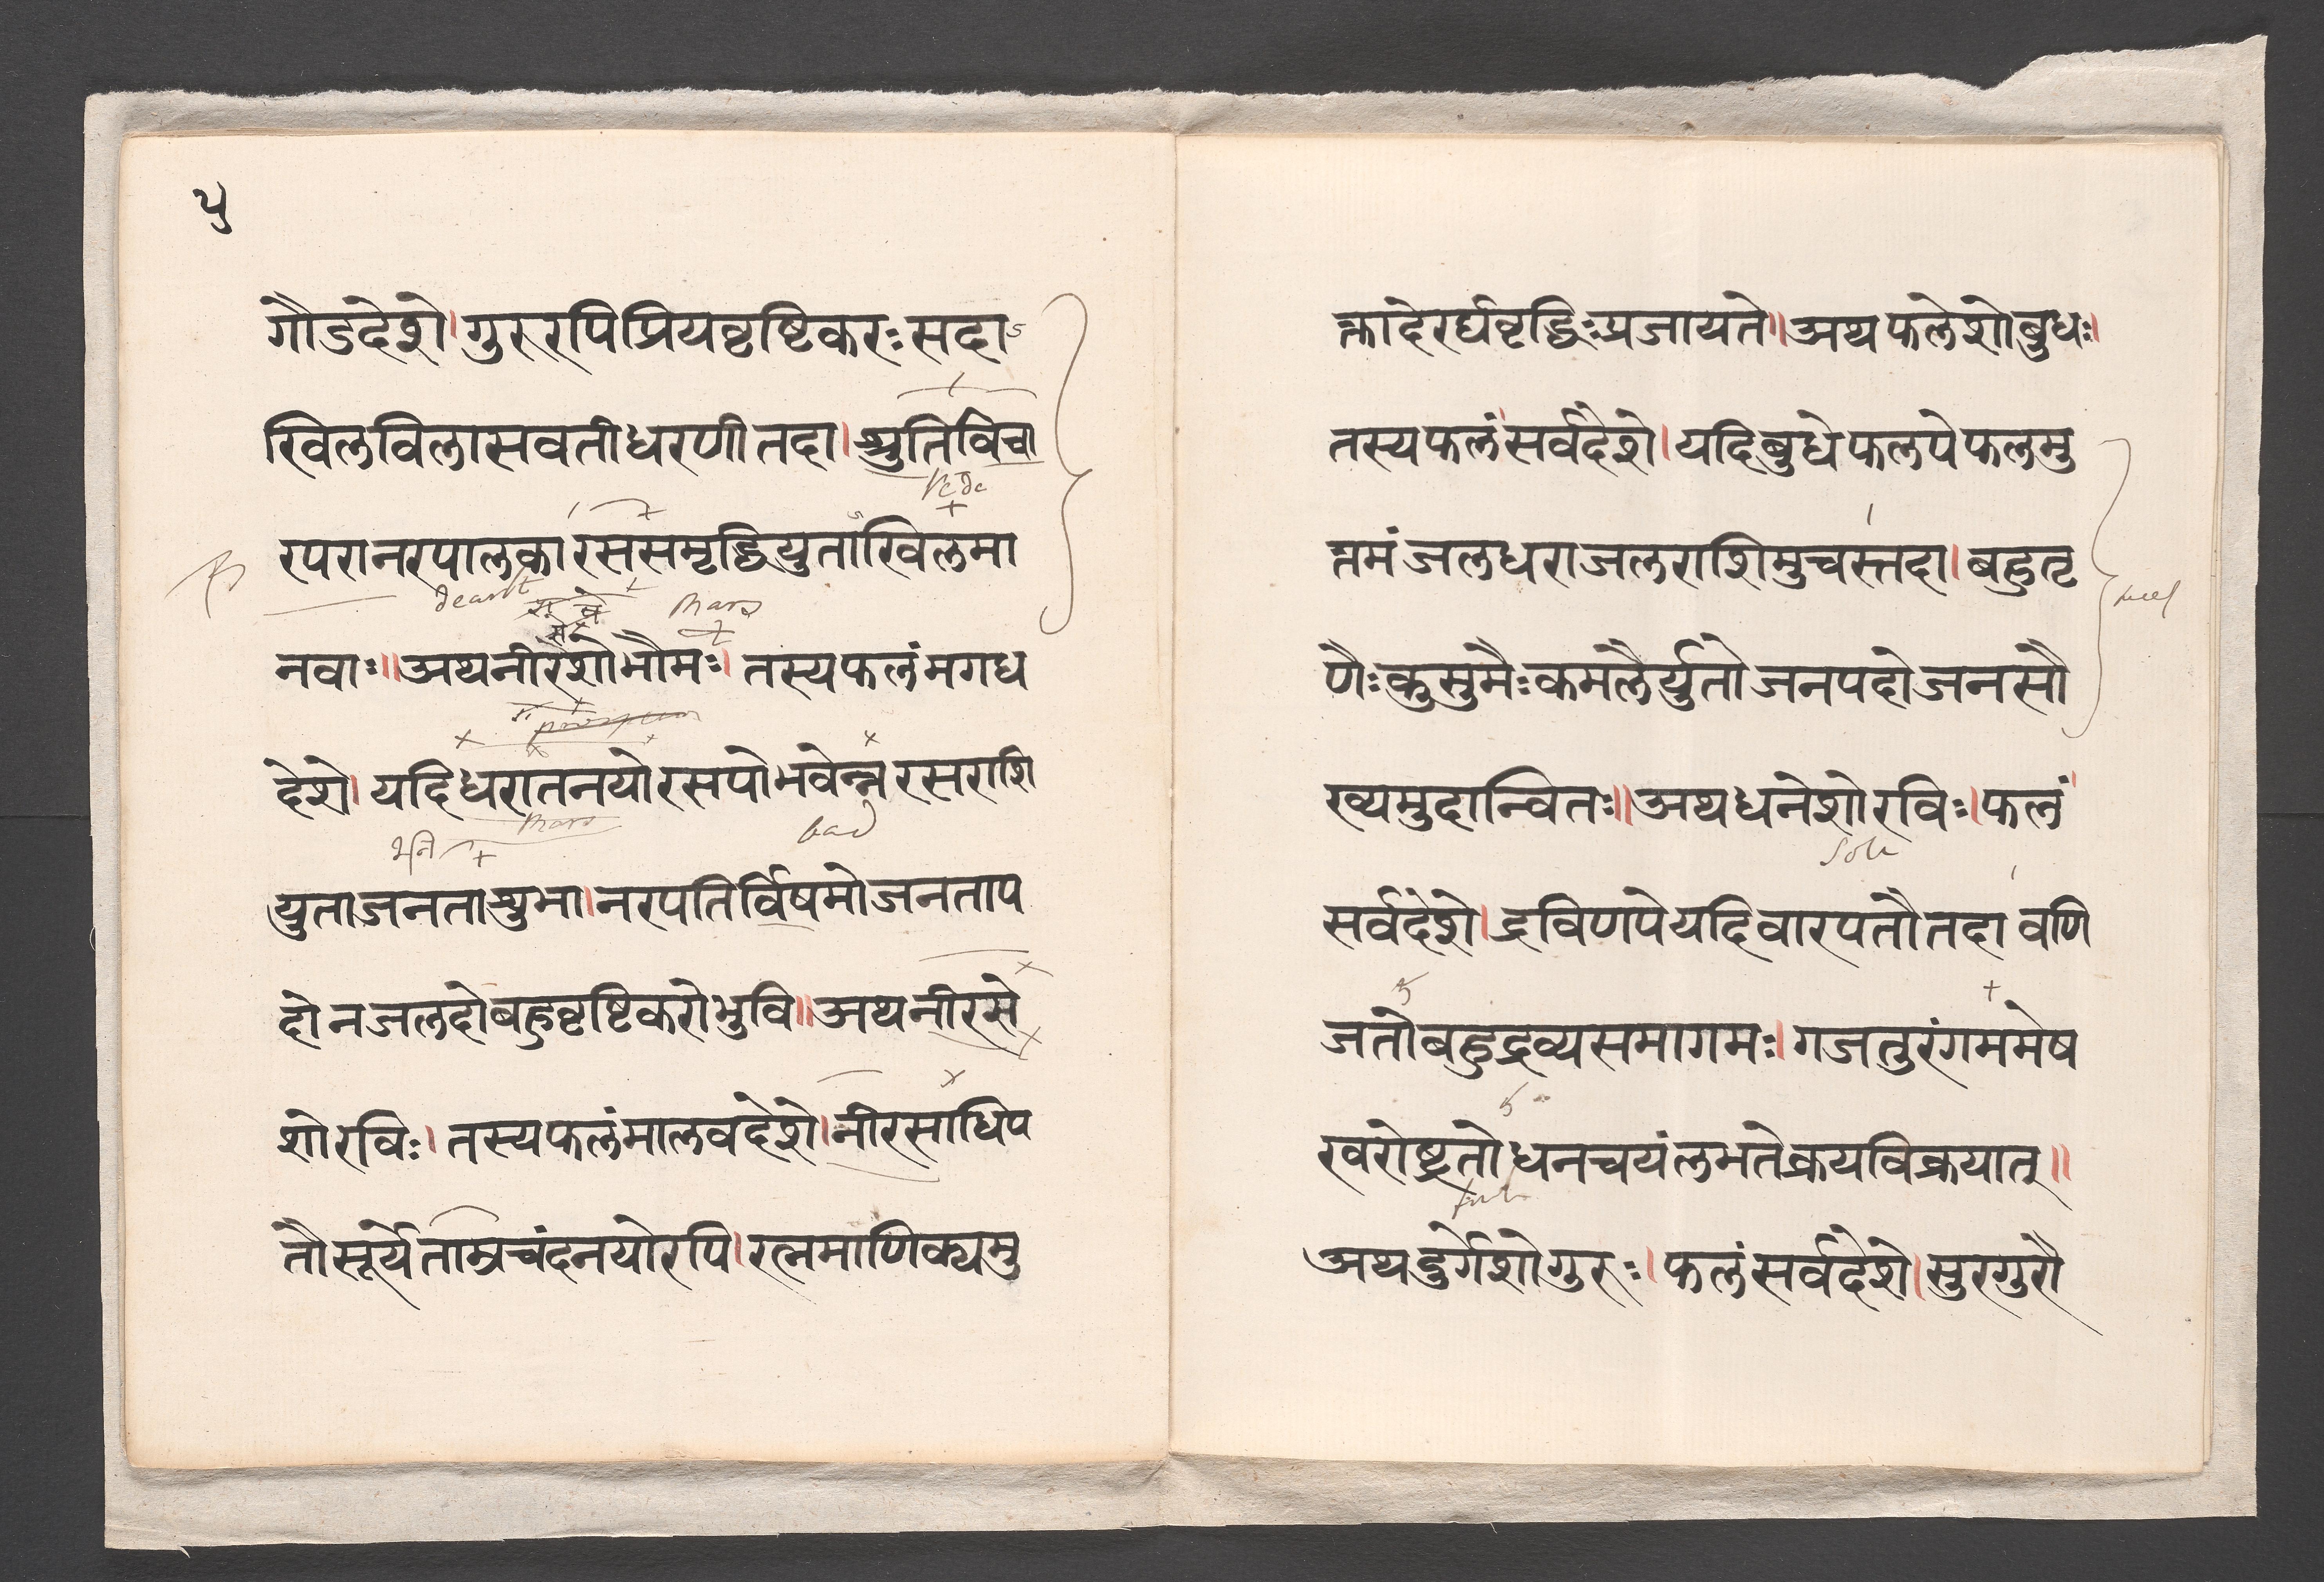 ५
गौडदेशे।गुरुरपिप्रियवृष्टिकरःसदाऽ
खिलविलासवतीधरणीतदा।श्रुतिविचा
Veda
रपरानरपालकारससमृद्धियुताखिलमा
dearth
Mars
नवाः॥अथनीरेशोभौमः।तस्यफलंमगध
देशे।यदिधरातनयोरसपोभवेन्नरसराशि
Mars
bad
युताजनताशुभा।नरपतिर्विषमोजनताप
दोनजलदोबहुवृष्टिकरोभुवि॥अथनीरसे
शोरविः।तस्यफलंमालवदेशे।नीरसाधिप
तौसूर्येताम्रचंदनयोरपि।रत्नमाणिक्यमु
क्तादेरर्घवृद्धिःप्रजायते॥अथफलेशोबुधः॥
तस्यफलंसर्वदेशे।यदिबुधेफलपेफलमु
त्तमंजलधराजलराशिमुचस्तदा।बहुतृ
णैःकुसुमैःकमलैर्युतोजनपदोजनसौ
ख्यमुदान्वितः॥अथधनेशोरविः।फलं
Sole
सर्वदेशे।द्रविणपेयदिवारपतौतदावणि
जतोबहुद्रव्यसमागमः।गजतुरंगममेष
खरोष्ट्रतोधनचयंलभतेक्रयविक्रयात्॥
अथदुर्गेशोगुरुः।फलंसर्वदेशे।सुरगुरौ